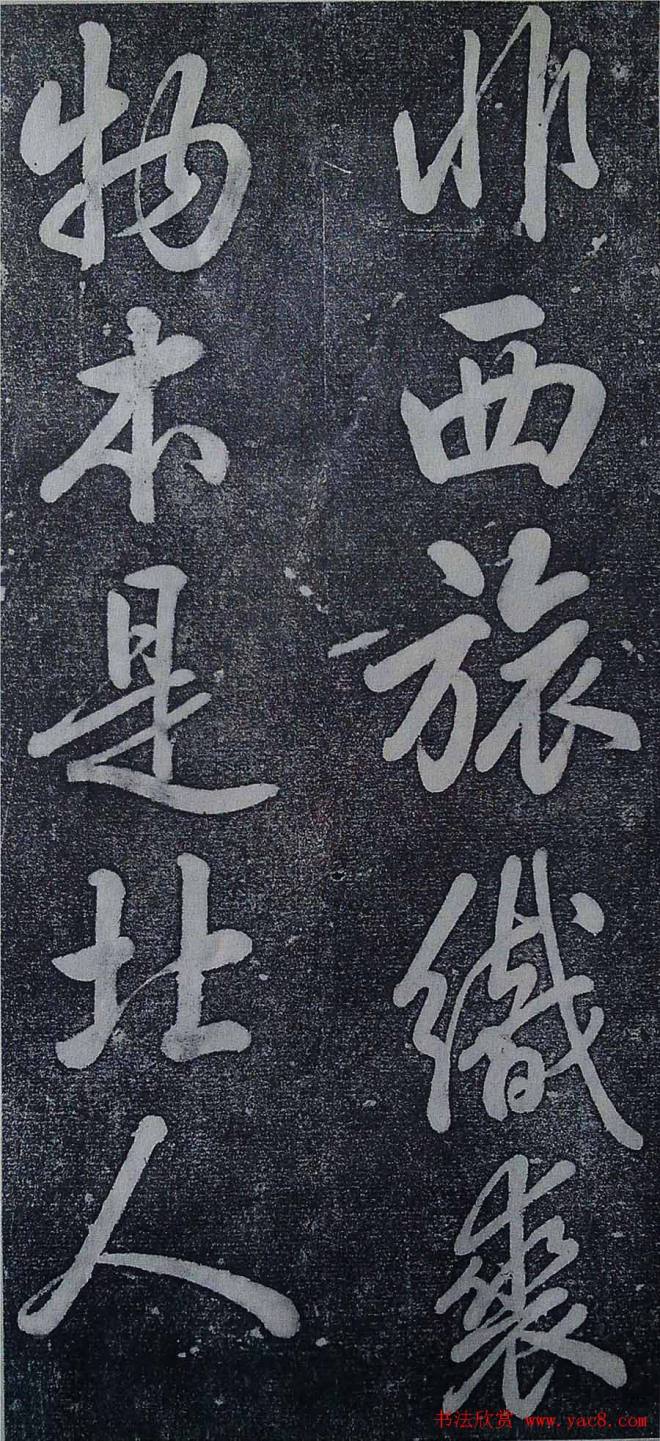 非西旅織裘
物本是北人
书法欣赏 www.yac8.com